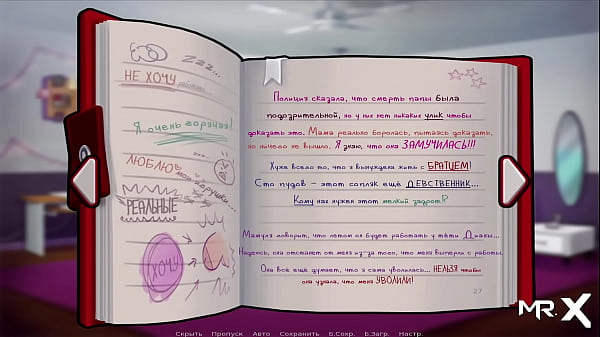 Zzz...
НЕ ХОЧУ
Я очень горячая!
ЛЮБЛЮ
мои
РЕАЛЬНЫЕ
ХОЧУ
Полиция сказала, что смерть папы была
подозрительной, но у них нет никаких улик чтобы
доказать это. Мама реально боролась, пытаясь доказать,
но ничего не вышло. Я знаю, что она ЗАМУЧИЛАСЬ!!!
Хуже всего то, что я вынуждена жить с БРАТЦЕМ!
Сто пудов - этот сопляк ещё ДЕВСТВЕННИК...
Кому нах нужен этот мелкий задрот?
Мамуля говорит, что летом он будет работать у тёти Дианы...
Надеюсь, она отстанет от меня из-за того, что меня выперли с работы.
Она всё ещё думает, что я сама уволилась... НЕЛЬЗЯ чтобы
она узнала, что меня УВОЛИЛИ!
27
MR.X
Скрыть Пропуск Авто Сохранить Б.Сохр. Б.Загр. Настр.